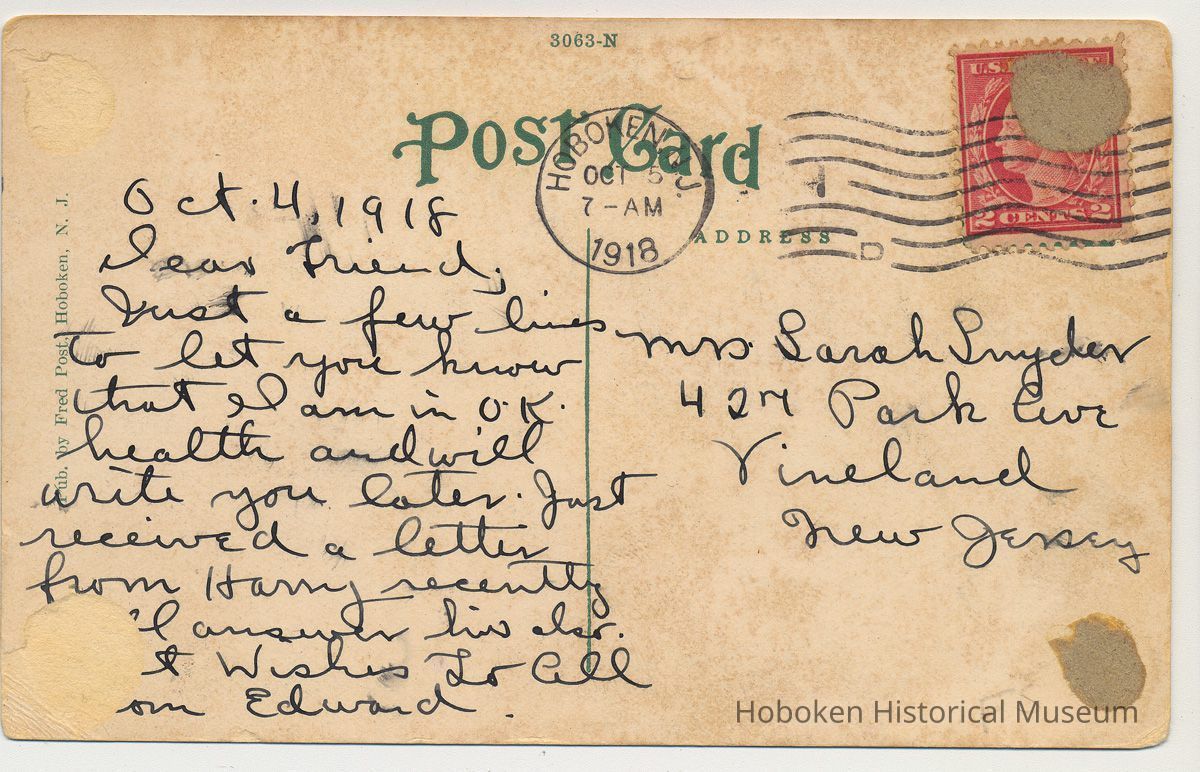 3063-N
Post Card
HOBOKEN, N.J.
OCT 5
7-AM
1918
U.S.
2 CENTS 2
D
ADDRESS
Pub. by Fred Post, Hoboken, N. J.
Oct. 4, 1918
Dear Friend,
Just a few lines
to let you know
that I am in O.K.
health and will
write you later. Just
received a letter
from Harry recently
'l answer his also.
t Wishes To All
om Edward.
Mrs. Sarah Snyder
427 Park Ave
Vineland
New Jersey
Hoboken Historical Museum